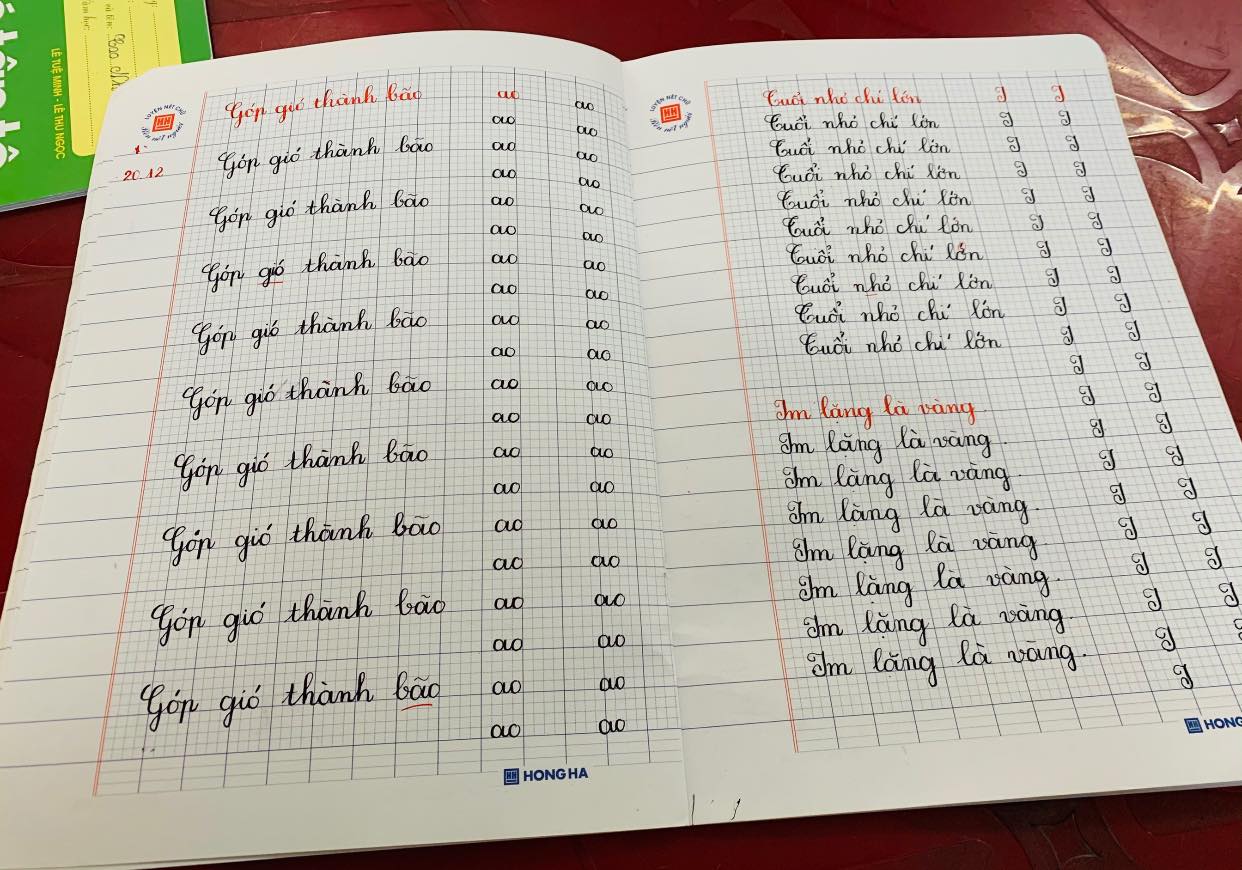 LÊ TUỆ MINH - LÊ THU NGỌC
LUYỆN NÉT CHỮ
HH
Rèn nết người
20.12
Góp gió thành bão ao ao
ao ao
Góp gió thành bão ao ao
ao ao
Góp gió thành bão ao ao
ao ao
Góp gió thành bão ao ao
ao ao
Góp gió thành bão ao ao
ao ao
Góp gió thành bão ao ao
ao ao
Góp gió thành bão ao ao
ao ao
Góp gió thành bão ao ao
ao ao
Góp gió thành bão ao ao
ao ao
Góp gió thành bão ao ao
ao ao
HH HONG HA
LUYỆN NÉT CHỮ
HH
Rèn nết người
Tuổi nhỏ chí lớn I I
Tuổi nhỏ chí lớn I I
Tuổi nhỏ chí lớn I I
Tuổi nhỏ chí lớn I I
Tuổi nhỏ chí lớn I I
Tuổi nhỏ chí lớn I I
Tuổi nhỏ chí lớn I I
Tuổi nhỏ chí lớn I I
Tuổi nhỏ chí lớn I I
Tuổi nhỏ chí lớn I I
I I
Im lặng là vàng I I
Im lặng là vàng. I I
Im lặng là vàng. I I
Im lặng là vàng. I I
Im lặng là vàng I I
Im lặng là vàng. I I
Im lặng là vàng. I I
Im lặng là vàng. I
I
HH HONG